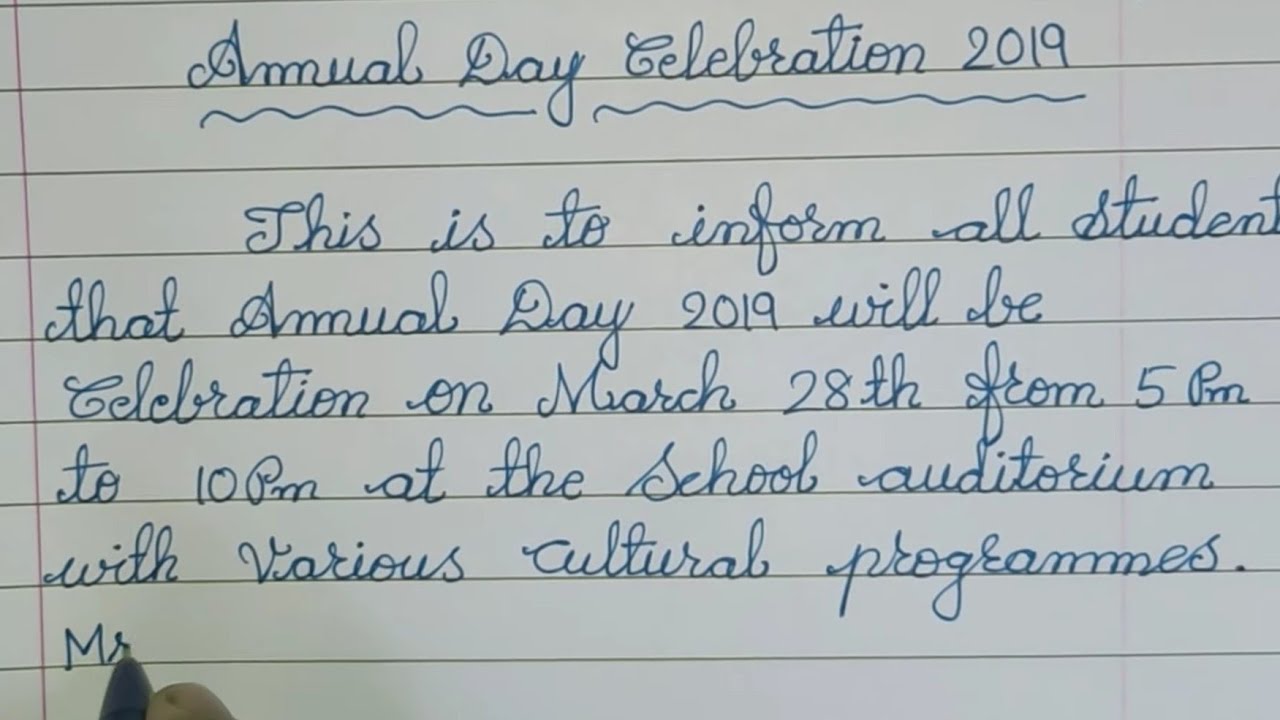 Annual Day Celebration 2019
This is to inform all student
that Annual Day 2019 will be
Celebration on March 28th from 5 Pm
to 10 Pm at the School auditorium
with Various Cultural programmes.
Mr